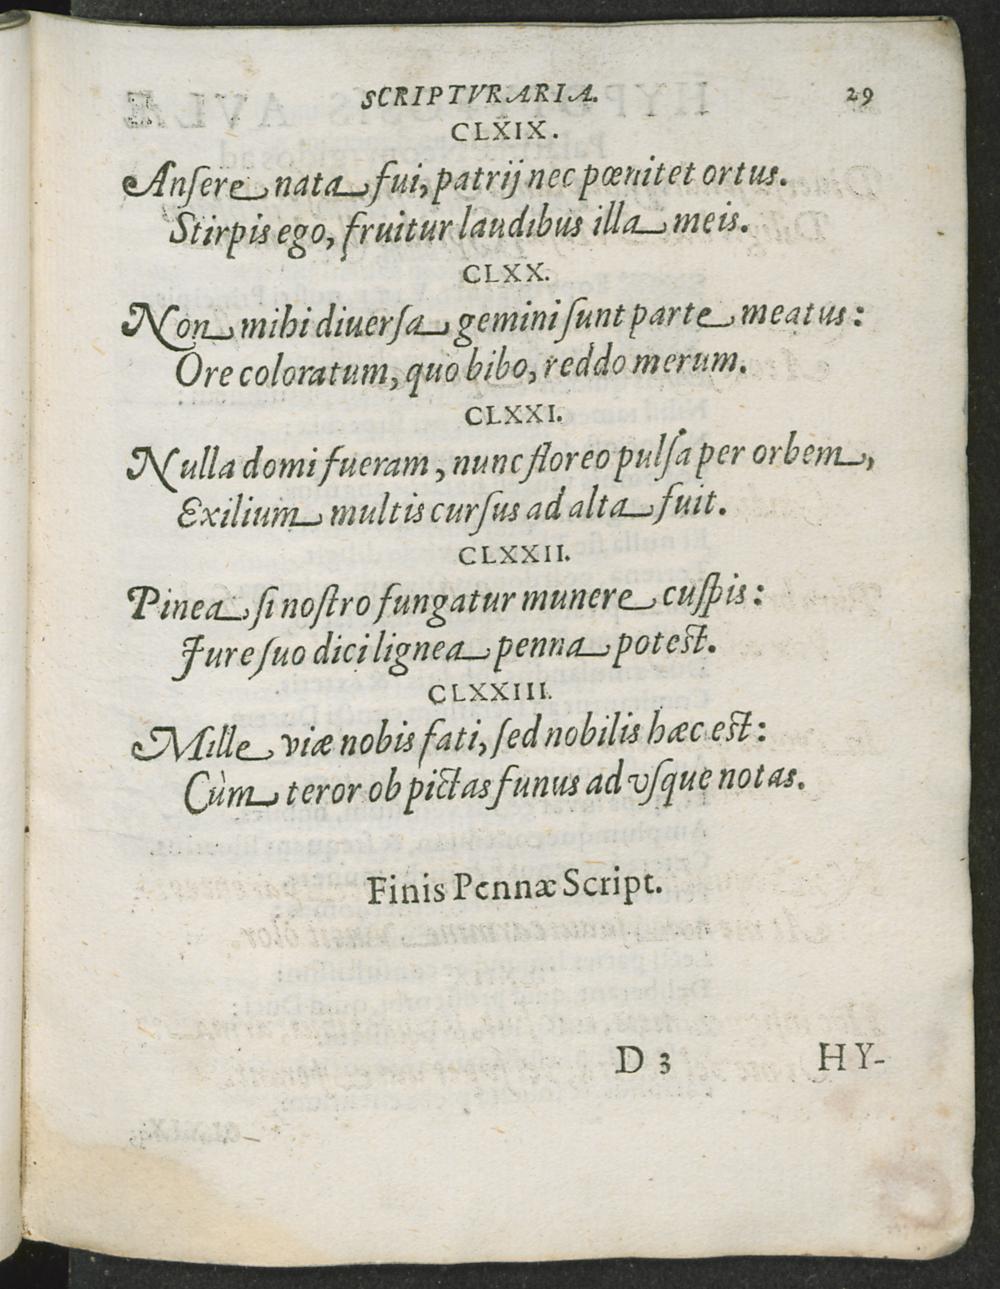 SCRIPTVRARIA. 29
CLXIX.
Anſere nata fui, patrij nec pœnitet ortus.
Stirpis ego, fruitur laudibus illa meis.
CLXX.
Non mihi diuerſa gemini ſunt parte meatus:
Ore coloratum, quo bibo, reddo merum.
CLXXI.
Nulla domi fueram, nunc floreo pulſa per orbem,
Exilium multis curſus ad alta fuit.
CLXXII.
Pinea ſi noſtro fungatur munere cuſpis:
Jure ſuo dici lignea penna poteſt.
CLXXIII.
Mille viæ nobis fati, ſed nobilis hæc eſt:
Cùm teror ob pictas funus ad vſque notas.
Finis Pennæ Script.
D 3 HY-